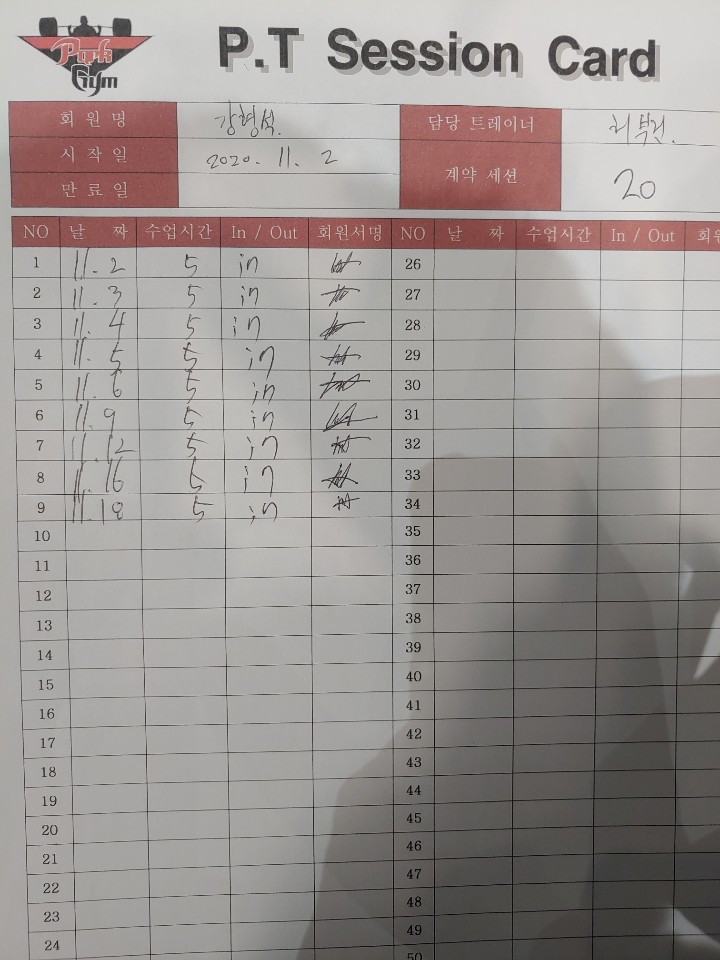 Park Gym
P.T Session Card
회원명 강형석 담당 트레이너
시작일 2020. 11. 2 계약 세션 20
만료일
NO 날 짜 수업시간 In / Out 회원서명 NO 날 짜 수업시간 In / Out
1 11. 2 5 in 26
2 11. 3 5 in 27
3 11. 4 5 in 28
4 11. 5 5 in 29
5 11. 6 5 in 30
6 11. 9 5 in 31
7 11. 12 5 in 32
8 11. 16 5 in 33
9 11. 18 5 in 34
10 35
11 36
12 37
13 38
14 39
15 40
16 41
17 42
18 43
19 44
20 45
21 46
22 47
23 48
24 49
50